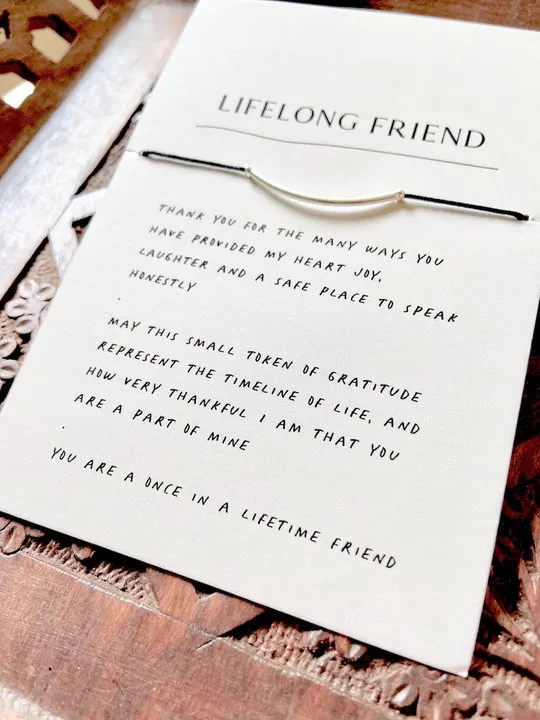 LIFELONG FRIEND
THANK YOU FOR THE MANY WAYS YOU
HAVE PROVIDED MY HEART JOY,
LAUGHTER AND A SAFE PLACE TO SPEAK
HONESTLY
.
MAY THIS SMALL TOKEN OF GRATITUDE
REPRESENT THE TIMELINE OF LIFE, AND
HOW VERY THANKFUL I AM THAT YOU
ARE A PART OF MINE
.
YOU ARE A ONCE IN A LIFETIME FRIEND